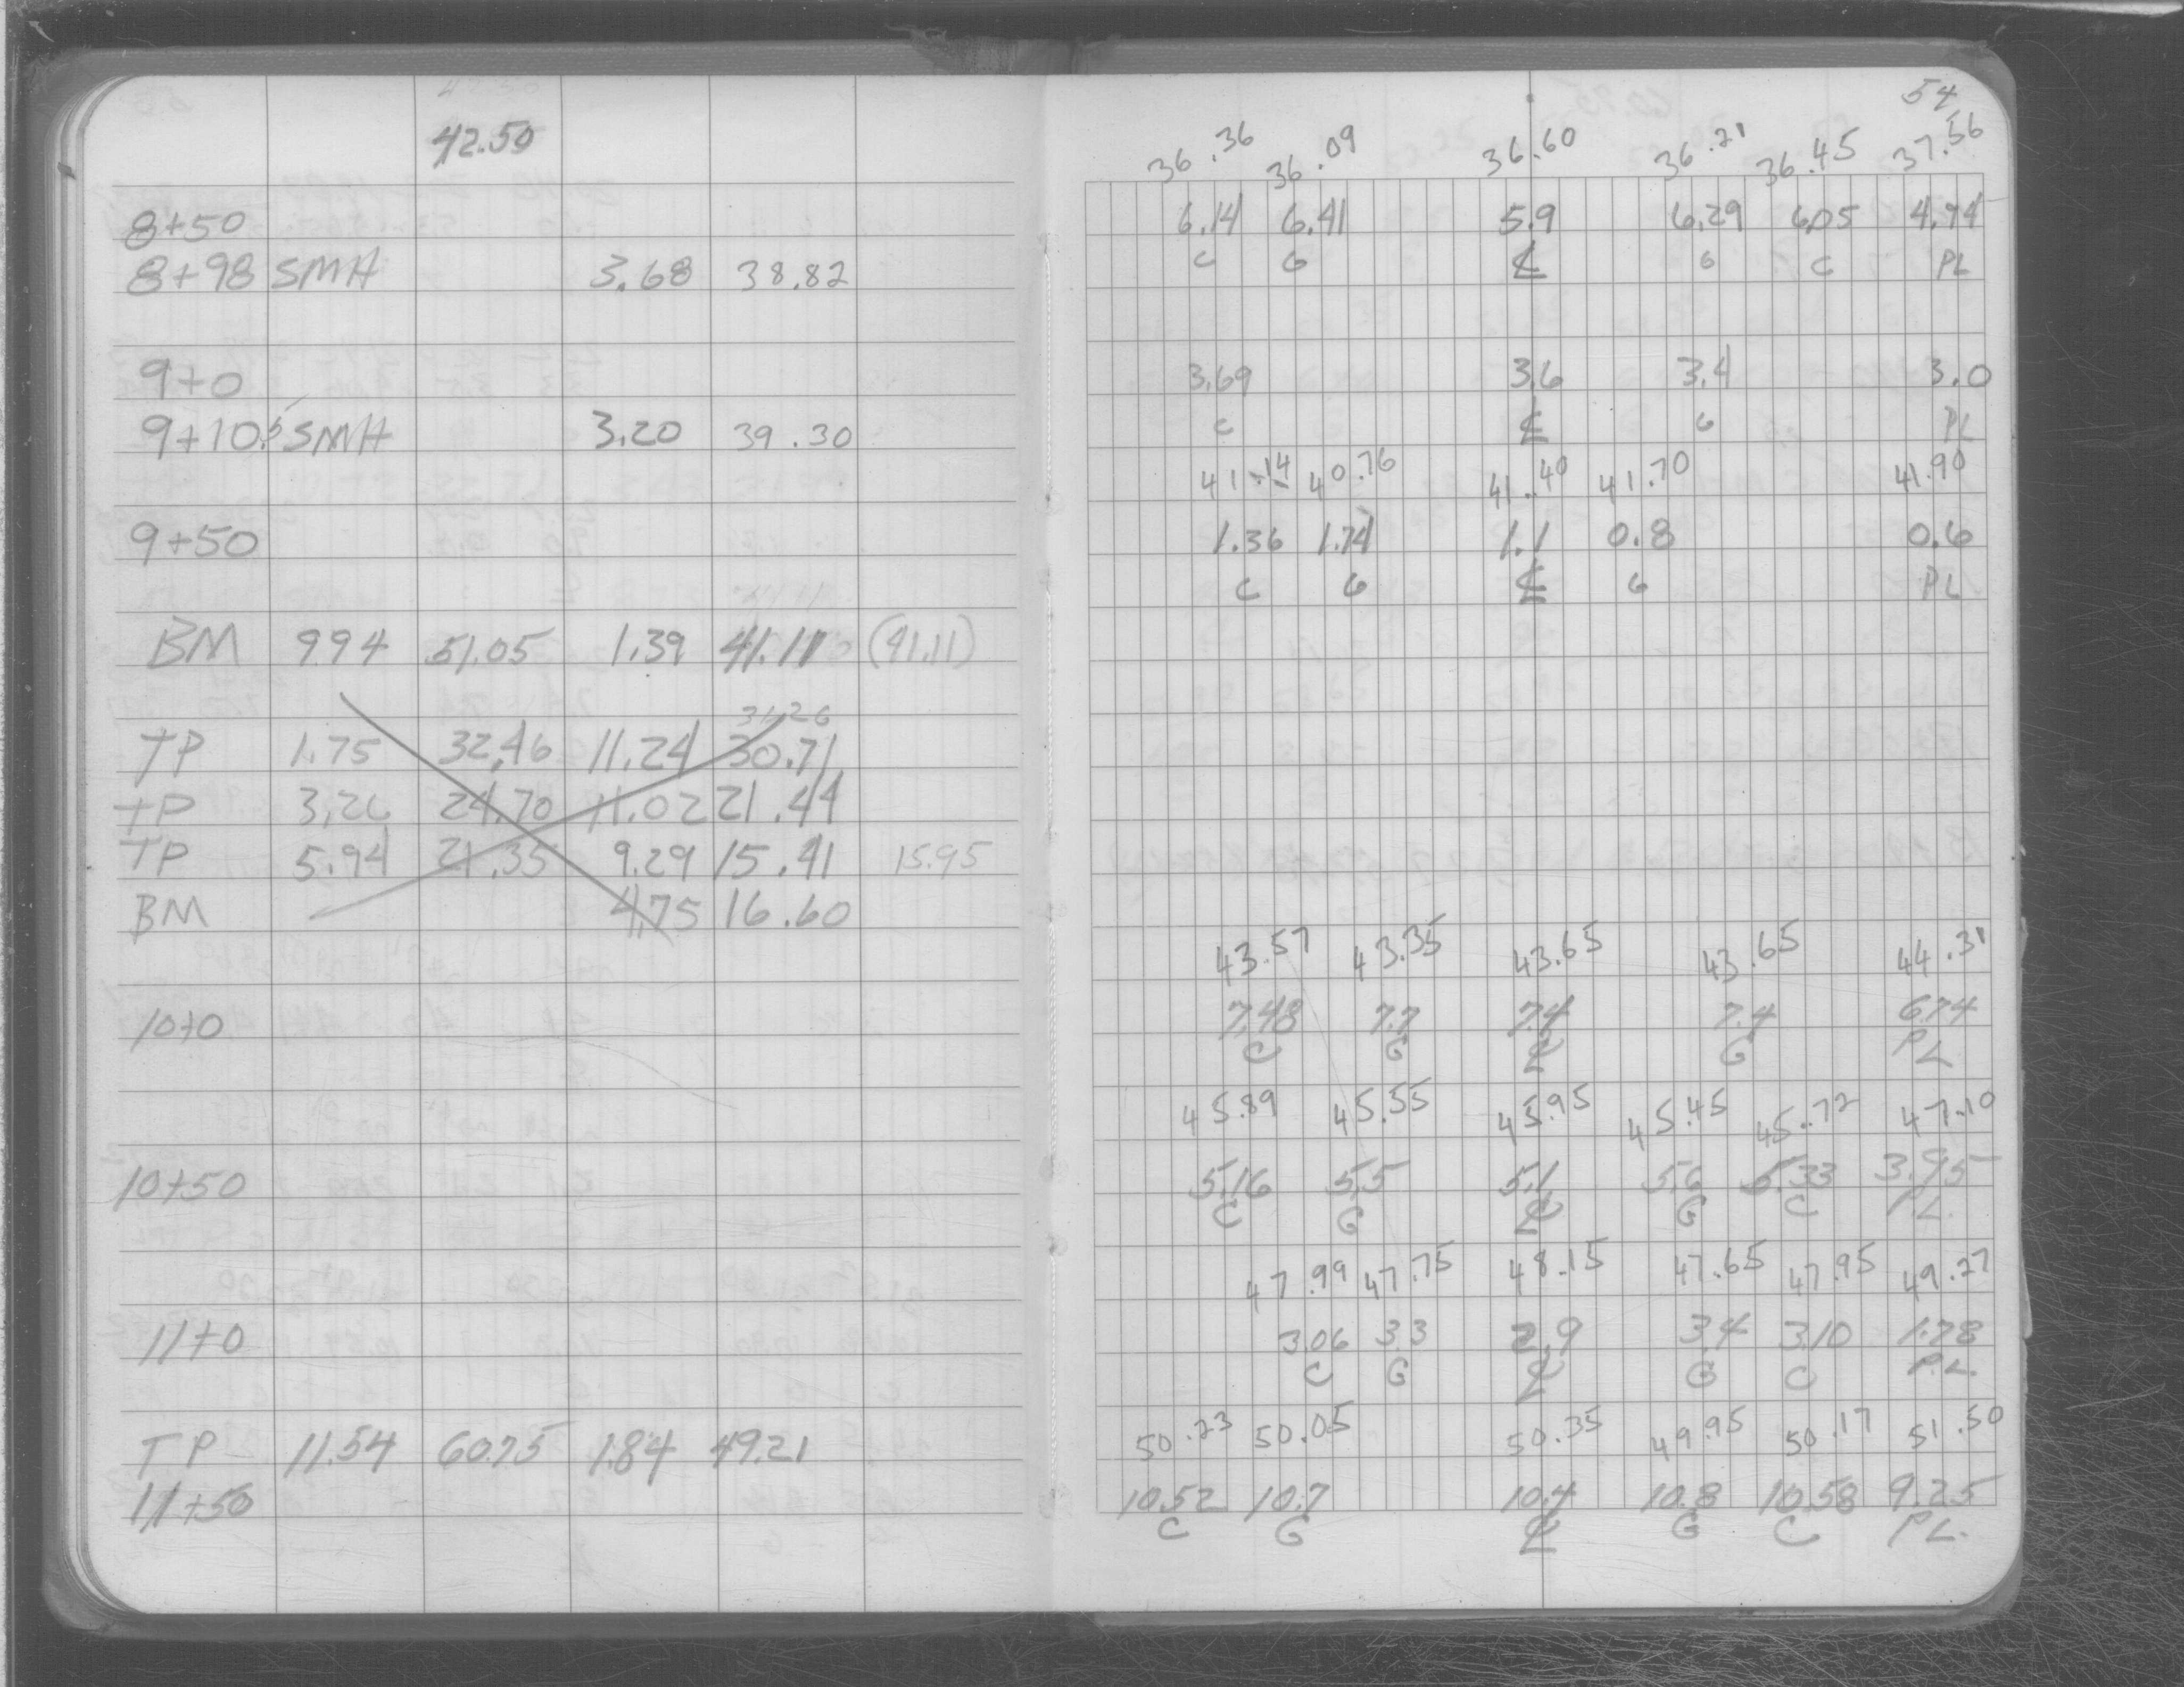 54
42.50
36.36 36.09 36.60 36.21 36.45 37.56
8+50 6.14 6.41 5.9 6.29 6.05 4.94
C G ℄ G C PL
8+98 SMH 3.68 38.82
9+0 3.69 3.6 3.4 3.0
C ℄ G PL
9+10.5 SMH 3.20 39.30
41.14 40.76 41.40 41.70 41.90
9+50 1.36 1.74 1.1 0.8 0.6
C G ℄ G PL
BM 9.94 51.05 1.39 41.11 (41.11)
31.26
TP 1.75 32.46 11.24 30.71
TP 3.26 24.70 11.02 21.44
TP 5.94 21.35 9.29 15.41 15.95
BM 4.75 16.60
43.57 43.35 43.65 43.65 44.31
10+0 7.48 7.7 7.4 7.4 6.74
C G ℄ G PL
45.89 45.55 45.95 45.45 45.72 47.10
10+50 5.16 5.5 5.1 5.6 5.33 3.95
C G ℄ G C P.L.
47.99 47.75 48.15 47.65 47.95 49.27
11+0 3.06 3.3 2.9 3.4 3.10 1.78
C G ℄ G C P.L.
50.23 50.05 50.35 49.95 50.17 51.50
TP 11.54 60.75 1.84 49.21
11+50 10.52 10.7 10.4 10.8 10.58 9.25
C G ℄ G C P.L.